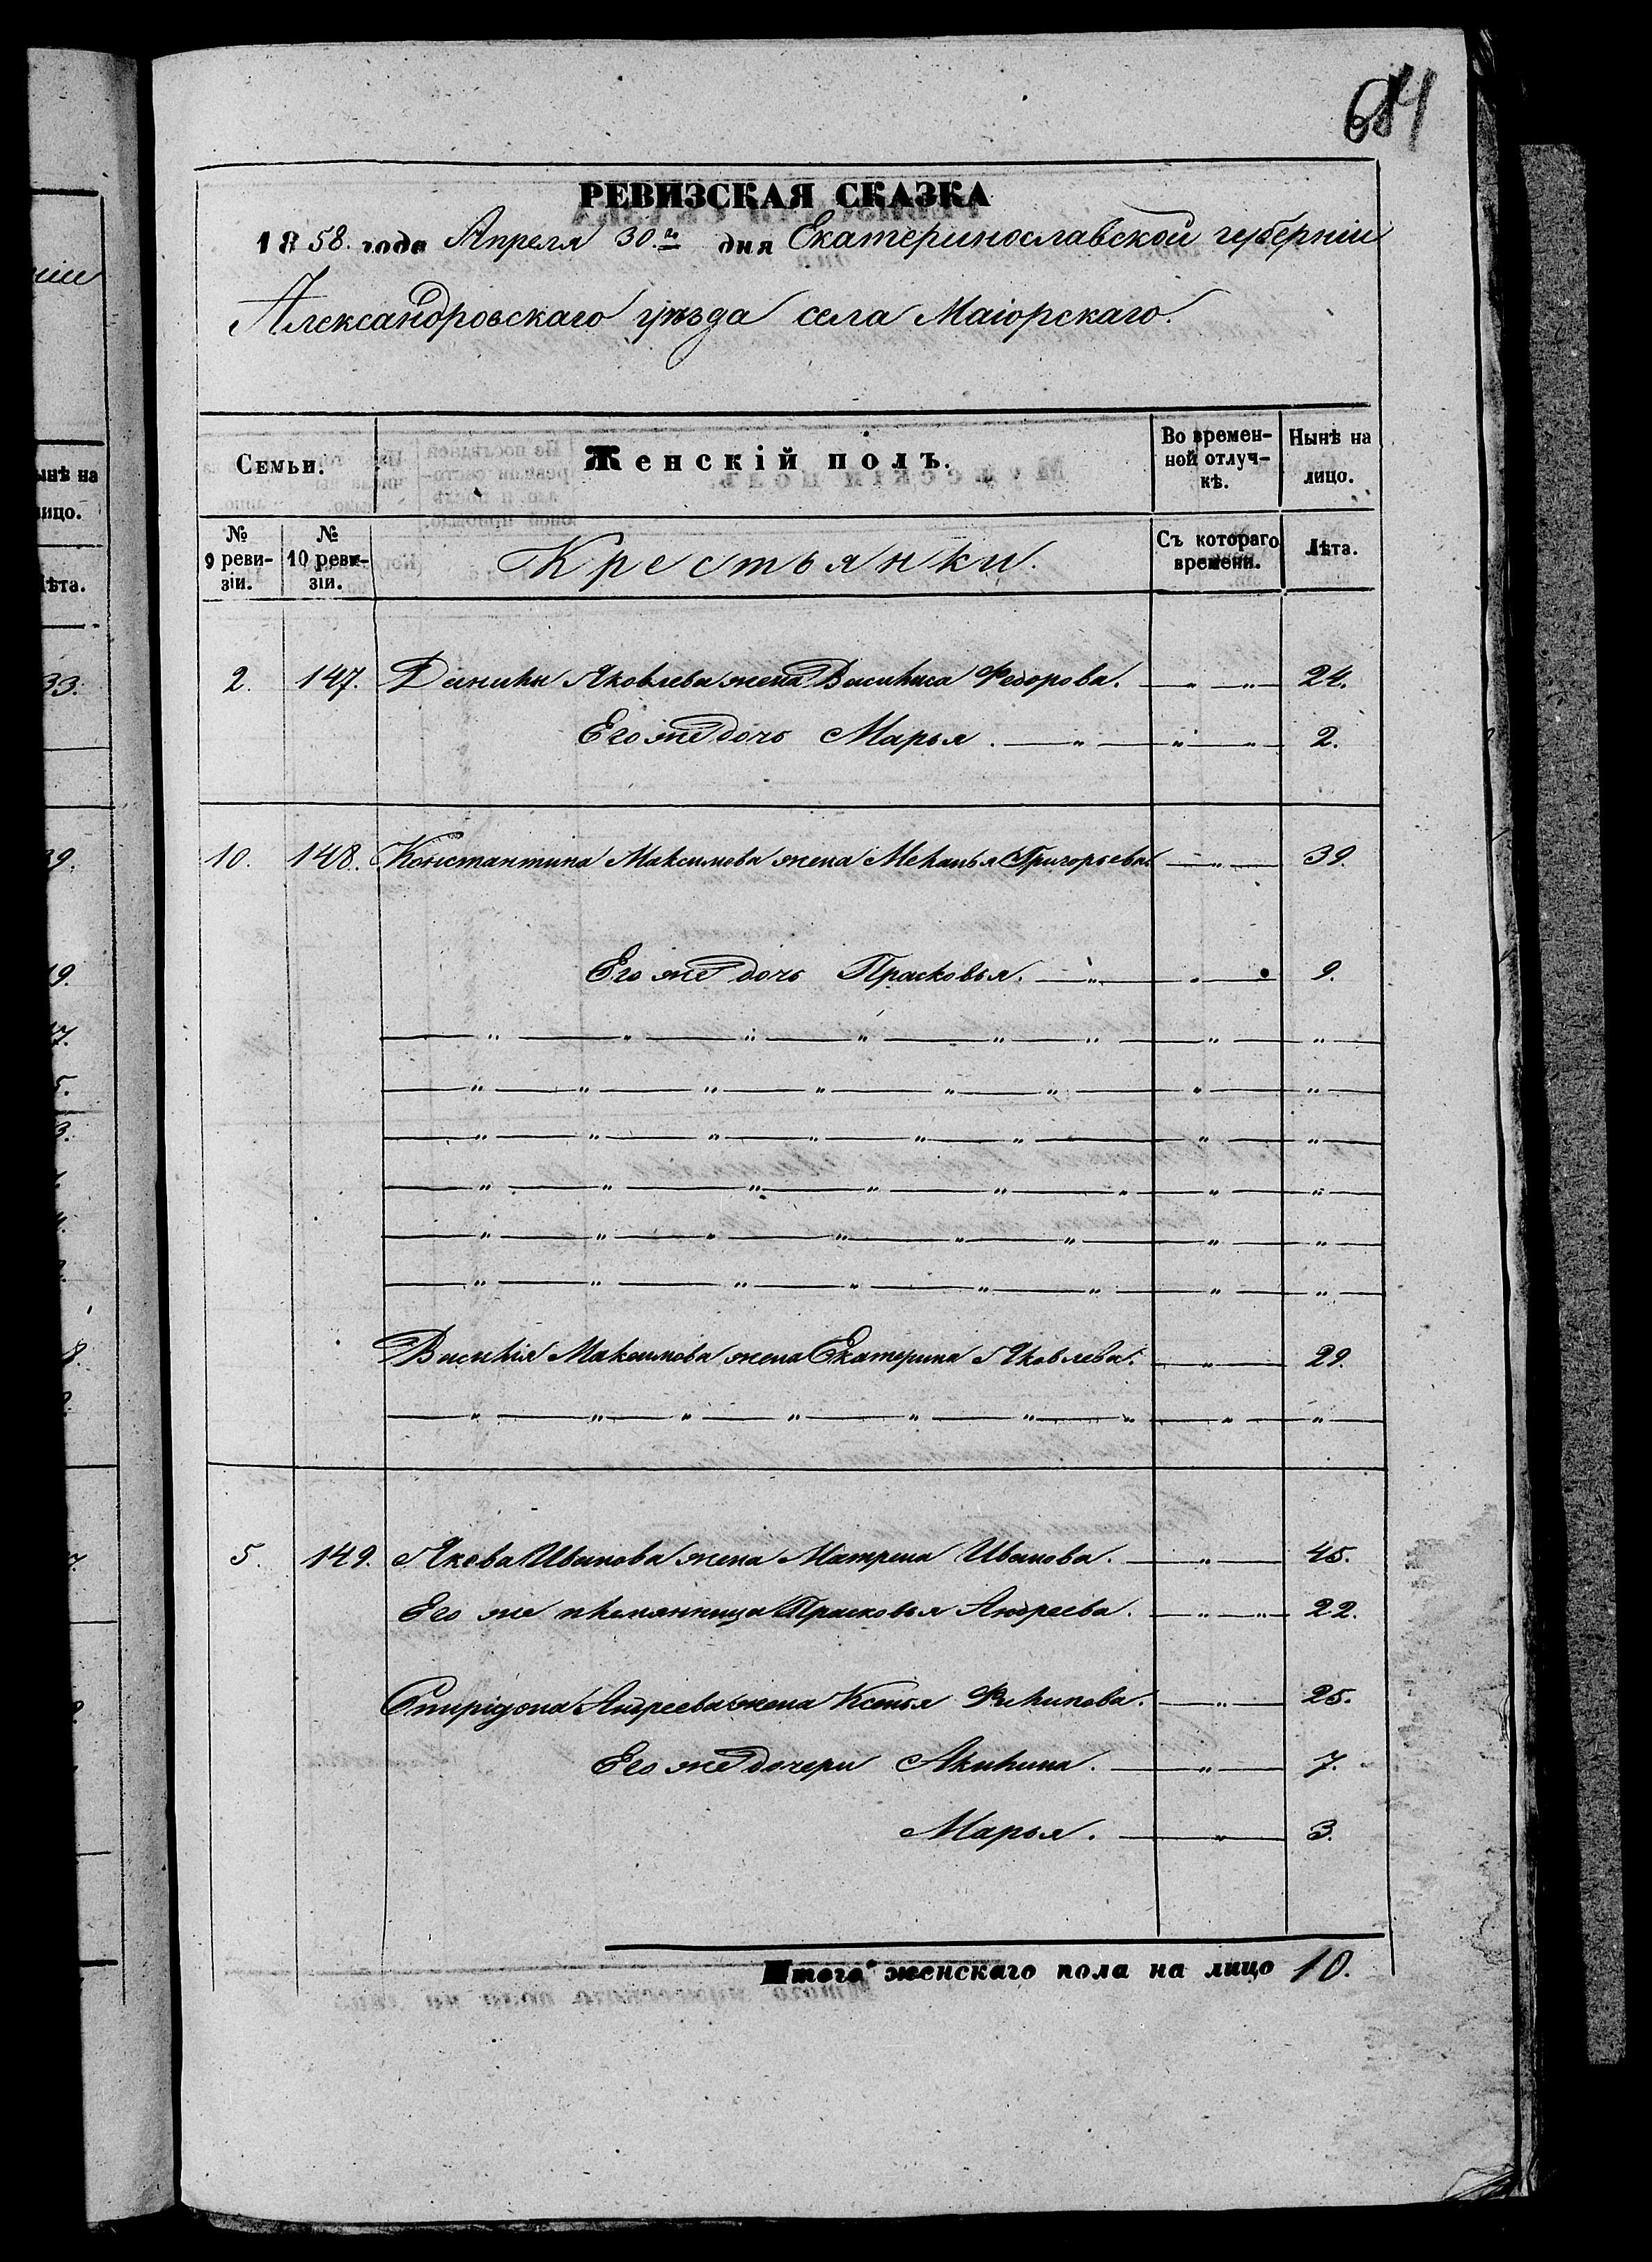 684
РЕВИЗСКАЯ СКАЗКА
1858. года Апреля 30.го дня Екатеринославской губерніи
Александровскаго уѣзда села Маіорскаго.
Семьи. Женскій полъ. Во времен-ной отлуч-кѣ. Нынѣ на лицо.
№ 9 реви-зіи. № 10 реви-зіи. Крестьянки. Съ котораго времени. Лѣта.
2. 147. Данилы Яковлева жена Василиса Федорова. — „ — „ — 24.
Его же дочь Марья. — „ — „ — „ — 2.
10. 148. Константина Максимова жена Меланья Григорьева — „ — 39.
Его же дочь Прасковья. — „ — „ — 9.
Василія Максимова жена Екатерина Яковлева. — „ — 29.
5. 149. Якова Иванова жена Матрена Иванова. — „ — 45.
Его же племянница Прасковья Андреева. — „ — „ — 22.
Спиридона Андреева жена Ксенья Филипова. — „ — 25.
Его же дочери Акилина. — „ — 7.
Марья. — „ — 3.
Итого женскаго пола на лицо 10.